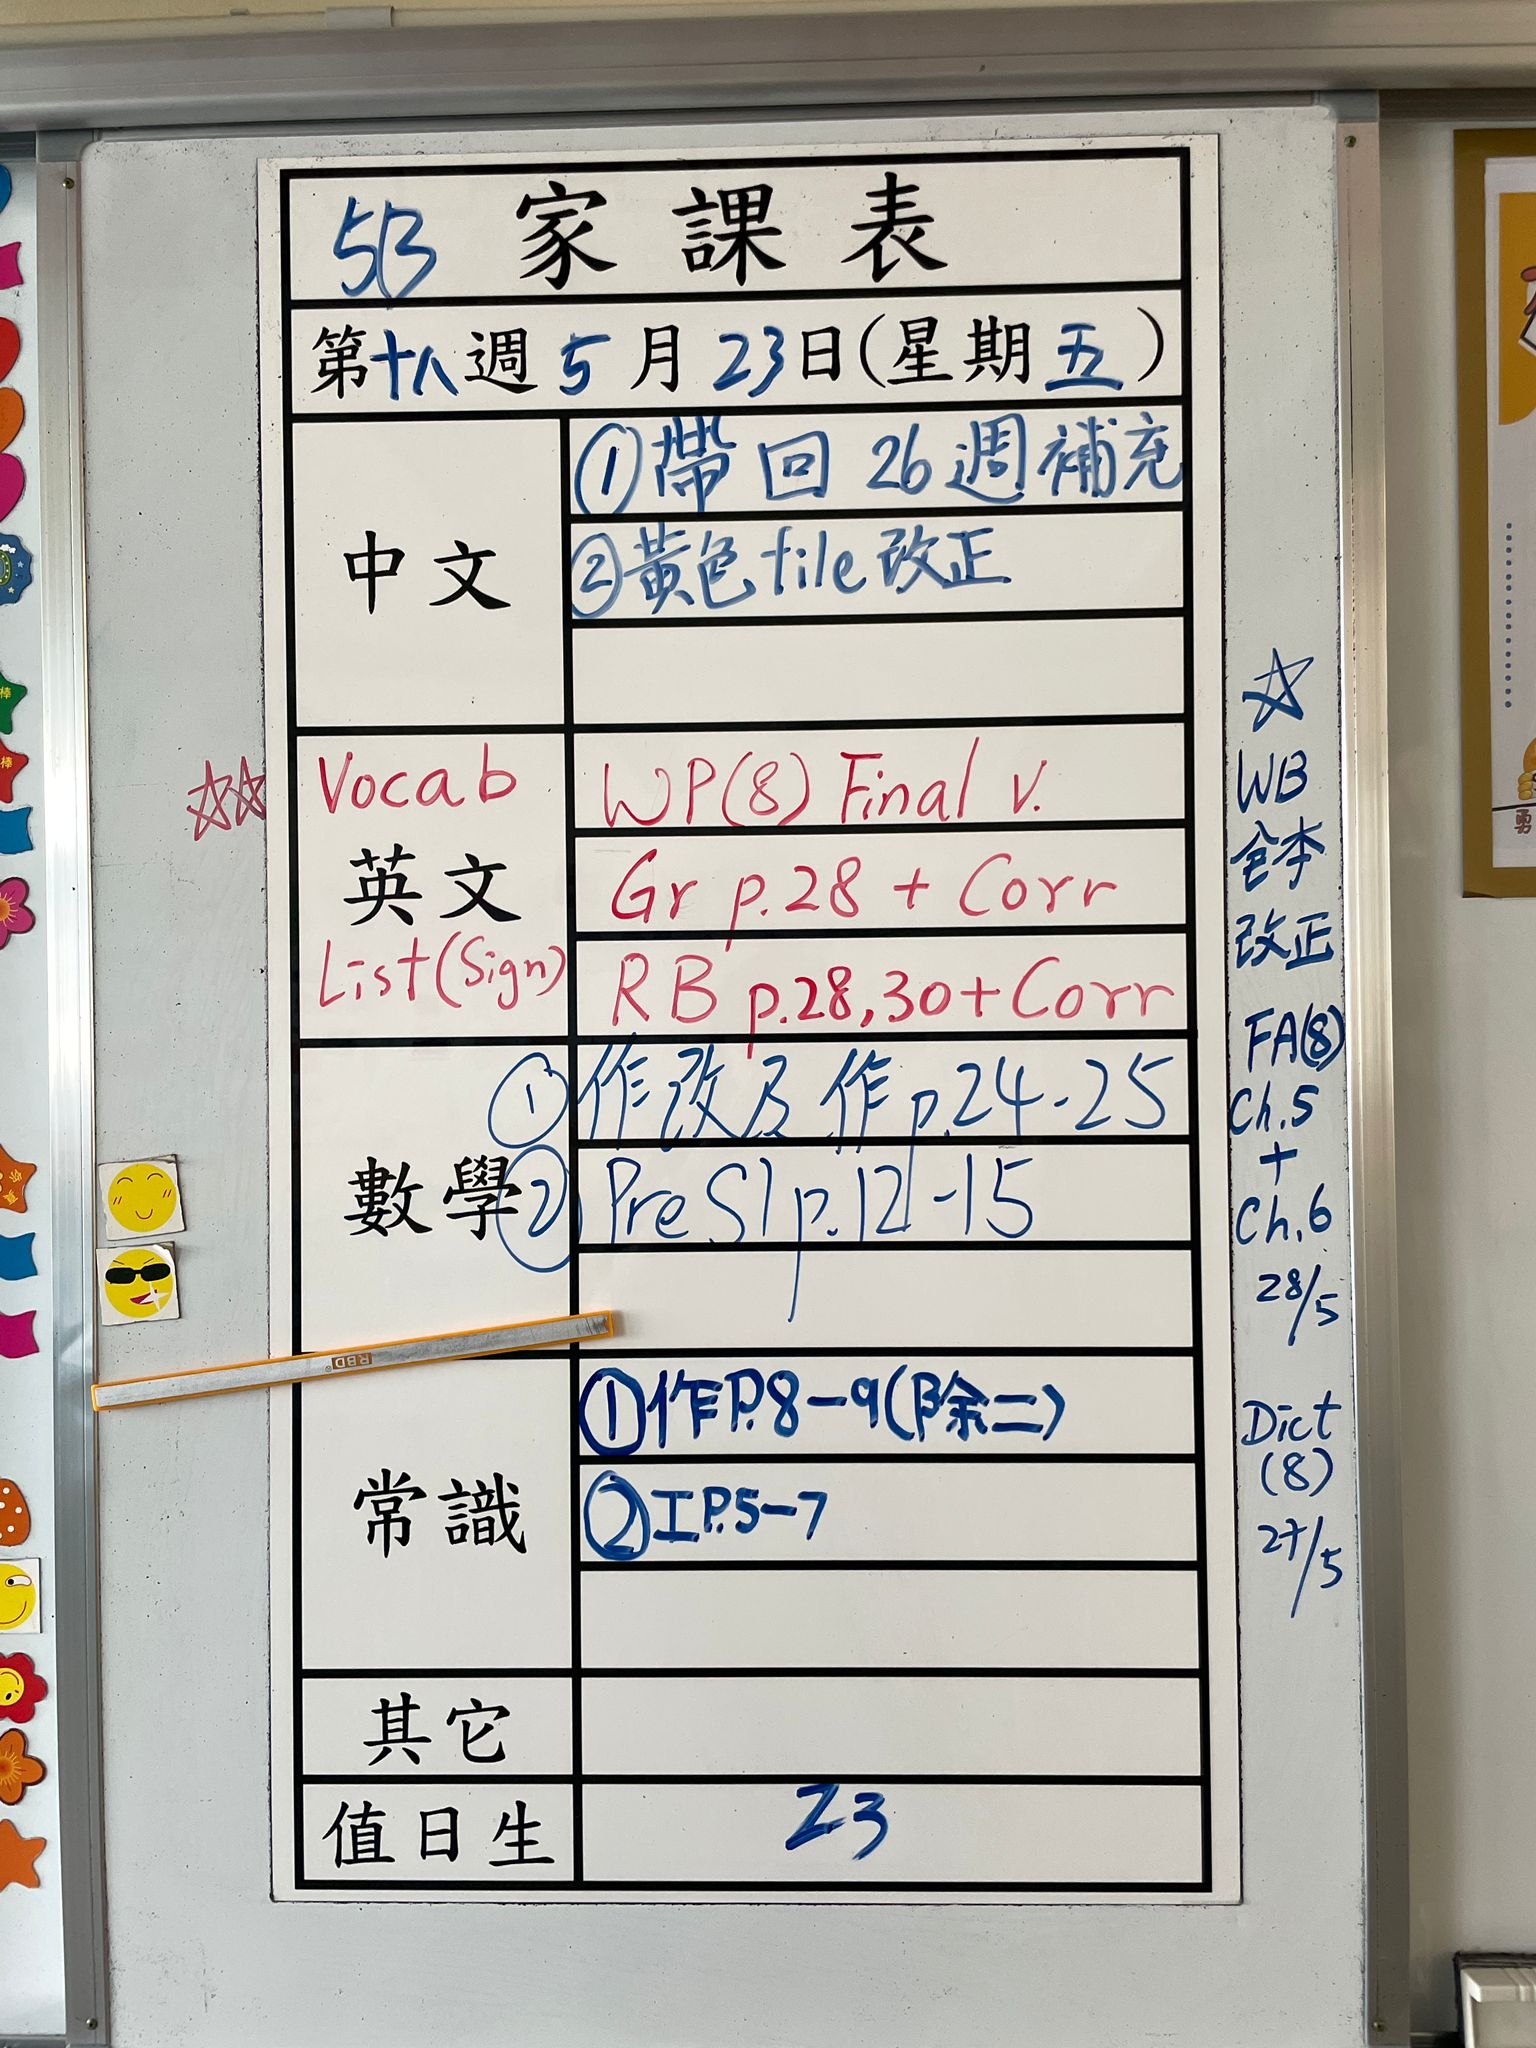 5B 家課表
第十八週 5月23日(星期五)
中文
①帶回26週補充
②黃色file改正
Vocab
英文
List(Sign)
WP(8) Final v.
Gr p.28 + Corr
RB p.28,30+Corr
數學
①作改及作p.24-25
②Pre S1 p.12-15
RBD
常識
①作P.8-9(除二)
②工P.5-7
其它
值日生
23
WB
全本
改正
FA(8)
Ch.5
+
Ch.6
28/5
Dict
(8)
27/5
棒
棒
勇